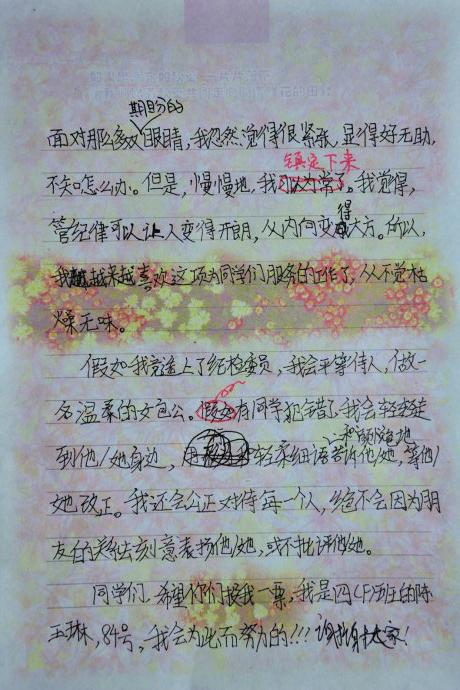 期盼的
面对那么多双眼睛，我忽然觉得很紧张，显得好无助，
镇定下来
不知怎么办。但是，慢慢地，我习以为常了。我觉得，
管纪律可以让人变得开朗，从内向变得大方。所以，
我越来越喜欢这项为同学们服务的工作了，从不觉枯
燥无味。
假如我竞选上了纪检委员，我会平等待人，做一
名温柔的女包公。假如有同学犯错了，我会轻轻走
和颜悦色地
到他/她身边，用轻柔细语告诉他/她，等他/
她改正。我还会公正对待每一个人，绝不会因为朋
友的关系去刻意表扬他/她，或不批评他/她。
同学们，希望你们投我一票，我是四(F)班的陈
玉琳，84号，我会为此而努力的！！！谢谢大家！